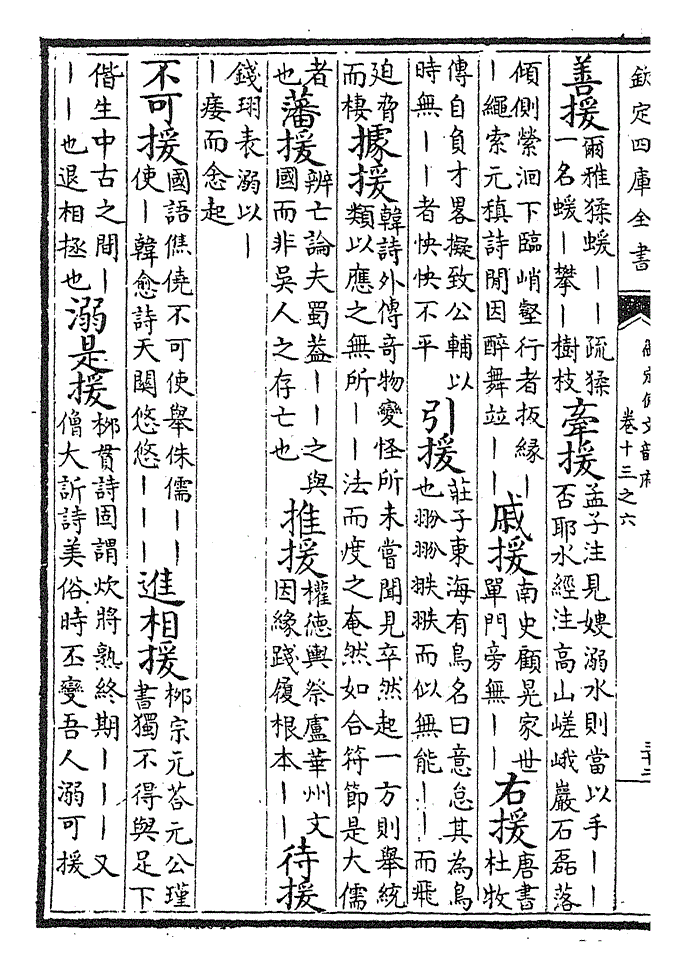 欽定四庫全書
御定佩文韻府
卷十三之六
三十二
善援
爾雅猱蝯——疏猱
一名蝯—攀—樹枝
牽援
孟子注見嫂溺水則當以手——
否耶水經注高山嵯峨巖石磊落
傾側縈洄下臨峭壑行者扳緣—
—繩索元稹詩閒因醉舞竝——
戚援
南史顧晃家世
單門旁無——
右援
唐書
杜牧
傳自負才畧擬致公輔以
時無——者怏怏不平
引援
莊子東海有鳥名曰意怠其為鳥
也翂翂翐翐而似無能——而飛
迫脅
而棲
據援
韓詩外傳奇物變怪所未嘗聞見卒然起一方則舉統
類以應之無所——法而度之奄然如合符節是大儒
者
也
藩援
辨亡論夫蜀蓋——之與
國而非吳人之存亡也
推援
權德輿祭盧華州文
因緣踐履根本——
待援
錢珝表溺以—
—痿而愈起
不可援
國語僬僥不可使舉侏儒——
使—韓愈詩天闕悠悠———
進相援
柳宗元荅元公瑾
書獨不得與足下
偕生中古之間—
——也退相拯也
溺是援
柳貫詩固謂炊將熟終期———又
僧大訢詩美俗時丕變吾人溺可援